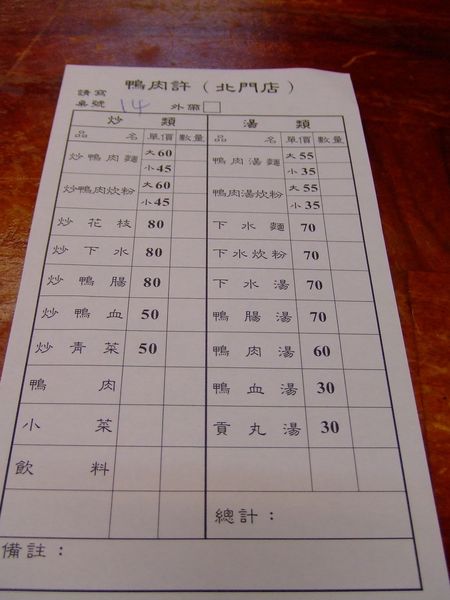 鴨肉許（北門店）
請寫
桌號 14 外帶□
炒類 湯類
品名 單價 數量 品名 單價 數量
炒鴨肉麵 大60 小45 鴨肉湯麵 大55 小35
炒鴨肉炊粉 大60 小45 鴨肉湯炊粉 大55 小35
炒花枝 80 下水麵 70
炒下水 80 下水炊粉 70
炒鴨腸 80 下水湯 70
炒鴨血 50 鴨腸湯 70
炒青菜 50 鴨肉湯 60
鴨肉 鴨血湯 30
小菜 貢丸湯 30
飲料
總計：
備註：